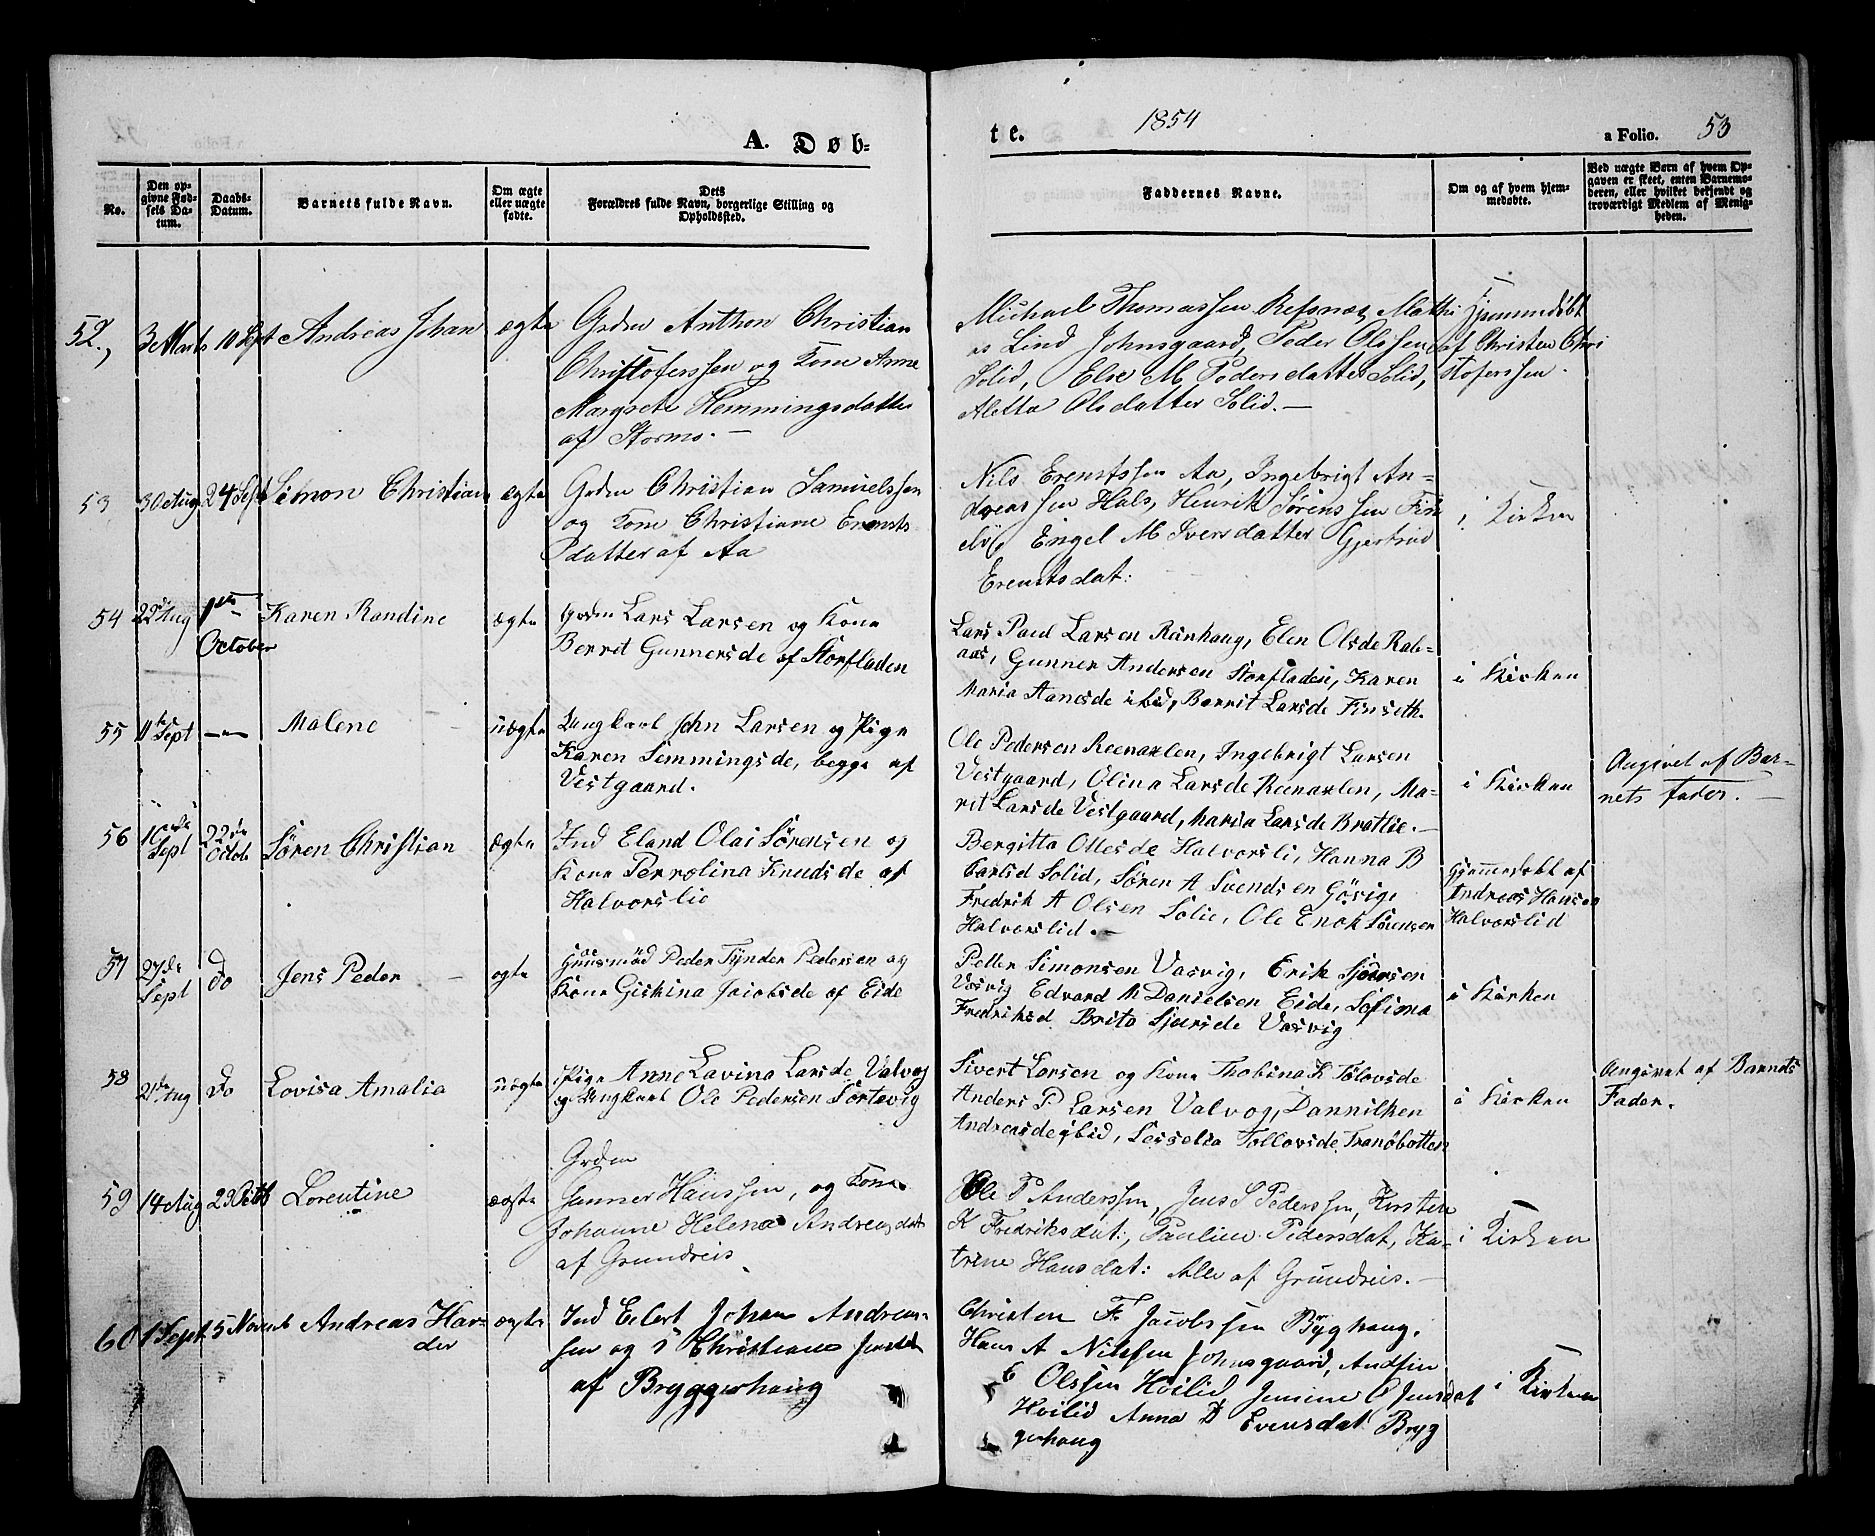 A. Døb-
te.
1854
a Folio. 53
No.
Den op-
givne Fød-
sels Da-
tum.
Daabs-
Datum.
Barnets fulde Navn.
Om ægte
eller uægte
fødte.
Dets
Forældres fulde Navn, borgerlige Stilling og
Opholdssted.
Faddernes Navne.
Om og af hvem hjem-
medøbte.
Ved uægte Børn af hvem Op-
gaven er skeet, enten Barnemo-
deren, eller hvilket bekjendt og
troværdigt Medlem af Menig-
heden.
52., 3 Marts 10 Sept Andreas Johan ægte
Grdm Anthon Christian
Christofersen og Kone Anne
Margrete Hemmingsdatter
af Stormo. —
Michael Thomassen Refsnæs, Mathi
as Lind Johnsgaard, Peder Olssen
Solid, Else M Pedersdatter Solid,
Aletta Olsdatter Solid. —
Hjemmedøbt
af Christen Chri
stoferssen.
53 30 Aug 24 Sept Simon Christian ægte
Grdm Christian Samuelssen
og Kone Christiane Erents
datter af Aa
Nils Erentssen Aa, Ingebrigt An-
dreassen Hals, Henrik Sørenssen Fin
elv, Engel M Iversdatter Gjertrud
Erentsdat:
i Kirken
54 22de Aug 1ste
October
Karen Randine ægte
Grdm Lars Larsen og Kone
Berrit Gunnersde af Storfladen
Lars Paul Larsen Rønhaug, Elen Olsde Rab-
aas, Gunner Andersen Storfladen, Karen
Maria Hansde ibid, Berrit Larsde Finseth.
i Kirken
55 11te Sept — Malene uægte
Ungkarl John Larsen og Pige
Karen Semmingsde, begge af
Vestgaard.
Ole Pedersen Reenaxlen, Ingebrigt Larsen
Vestgaard, Olina Larsde Reenaxlen, Ma-
rit Larsde Vestgaard, Maria Larsde Brattlie. —
i Kirken
Angivet af Bar-
nets Fader. —
56 16de Sept 22de Octob Søren Christian ægte
Ind Eland Olai Sørensen og
Kone Perrolina Knudsde af
Halvorslid
Bergitta Ollesde Halvorsli, Hanna B
Carlsd Solid, Søren A Svendsen Gösvig,
Fredrik A Olsen Solie, Ole Enok Sørensen
Halvorslid. —
Hjemmedøbt af
Andreas Hansen
Halvorslid
57 27de Sept Do Jens Peder ægte
Huusmd Peder Tynder Pedersen og
Kone Giskina Jacobsde af Eide
Petter Simonsen Vasvig, Erik Sjursen
Vasvig Edvard M Danielsen Eide, Sofima
Fredriksd Brita Sjursde Vasvig
i Kirken
58 21de Aug Do Lovisa Amalia uægte
Pige Anne Lavina Larsde Valvog
og Ungkarl Ole Pedersen Sortevig
Sivert Larsen og Kone Thobina K Tolovsde
Anders P Larsen Valvog, Danniken
Andreasde ibid, Sesselia Tollovsde Tranöbotten
i Kirken
Angivet af Barnets
Fader.
59 14 Aug 29 Octb Lorentine ægte
Grdm
Gunner Hanssen, og Kone
Johanne Helena Andreasdat
af Grundreis
Ole P Anderssen, Jens S Pederssen, Kirsten
K Fredriksdat:, Pauline Pedersdat, Ka-
trine Hansdat: Alle af Grundreis. —
i Kirken
60 1 Sept. 5 Novemb Andreas Har-
der ægte
Ind Eilert Johan Andreas-
sen og Christiane Jensdt
af Bryggerhaug
Christen F Jacobssen Byghaug,
Hans A Nilssen Johnsgaard, Andfin
E Olssen Høilid, Jensine O Jensdat
Høilid Anna D Evensdat Bryg
gerhaug
i Kirken